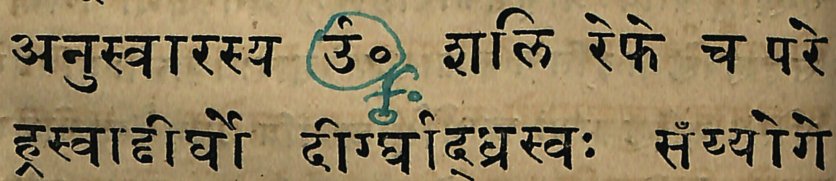 अनुस्वारस्य उं॰ शलि रेफे च परे
ह्रस्वाद्दीर्घो दीर्ग्घाद्ध्रस्वः सँय्योगे